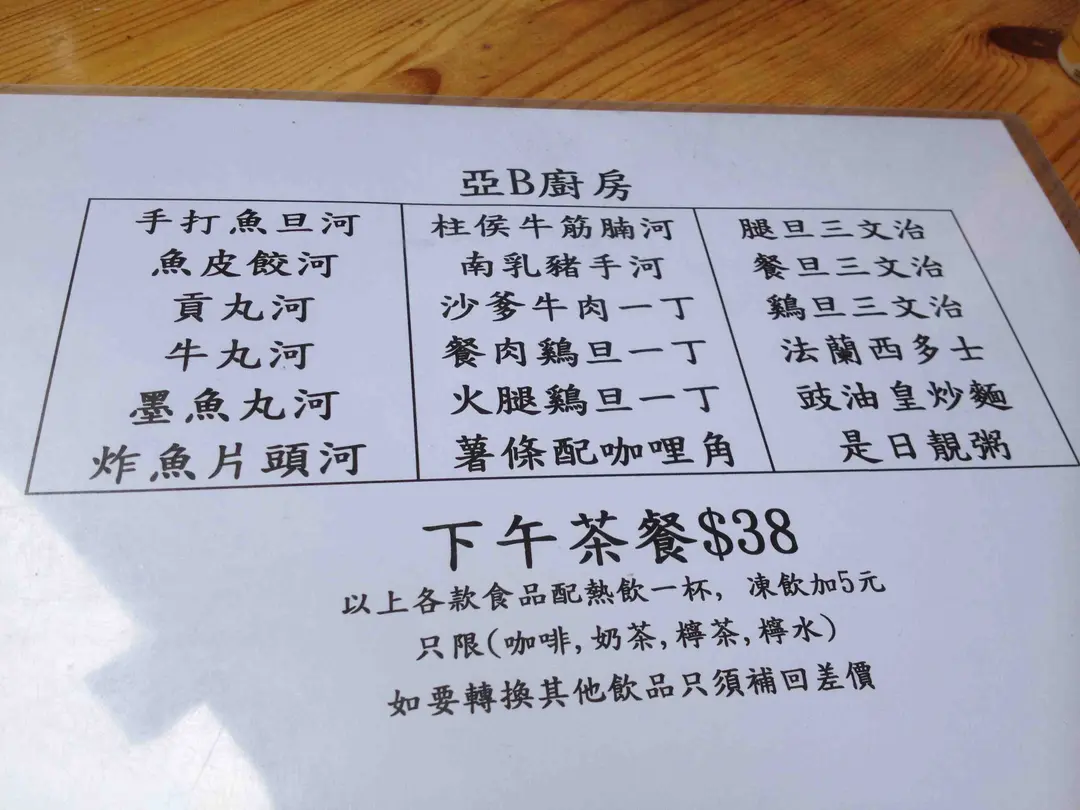 亞B廚房
手打魚旦河
魚皮餃河
貢丸河
牛丸河
墨魚丸河
炸魚片頭河
柱侯牛筋腩河
南乳豬手河
沙爹牛肉一丁
餐肉鷄旦一丁
火腿鷄旦一丁
薯條配咖哩角
腿旦三文治
餐旦三文治
鷄旦三文治
法蘭西多士
豉油皇炒麵
是日靚粥
下午茶餐$38
以上各款食品配熱飲一杯, 凍飲加5元
只限(咖啡,奶茶,檸茶,檸水)
如要轉換其他飲品只須補回差價